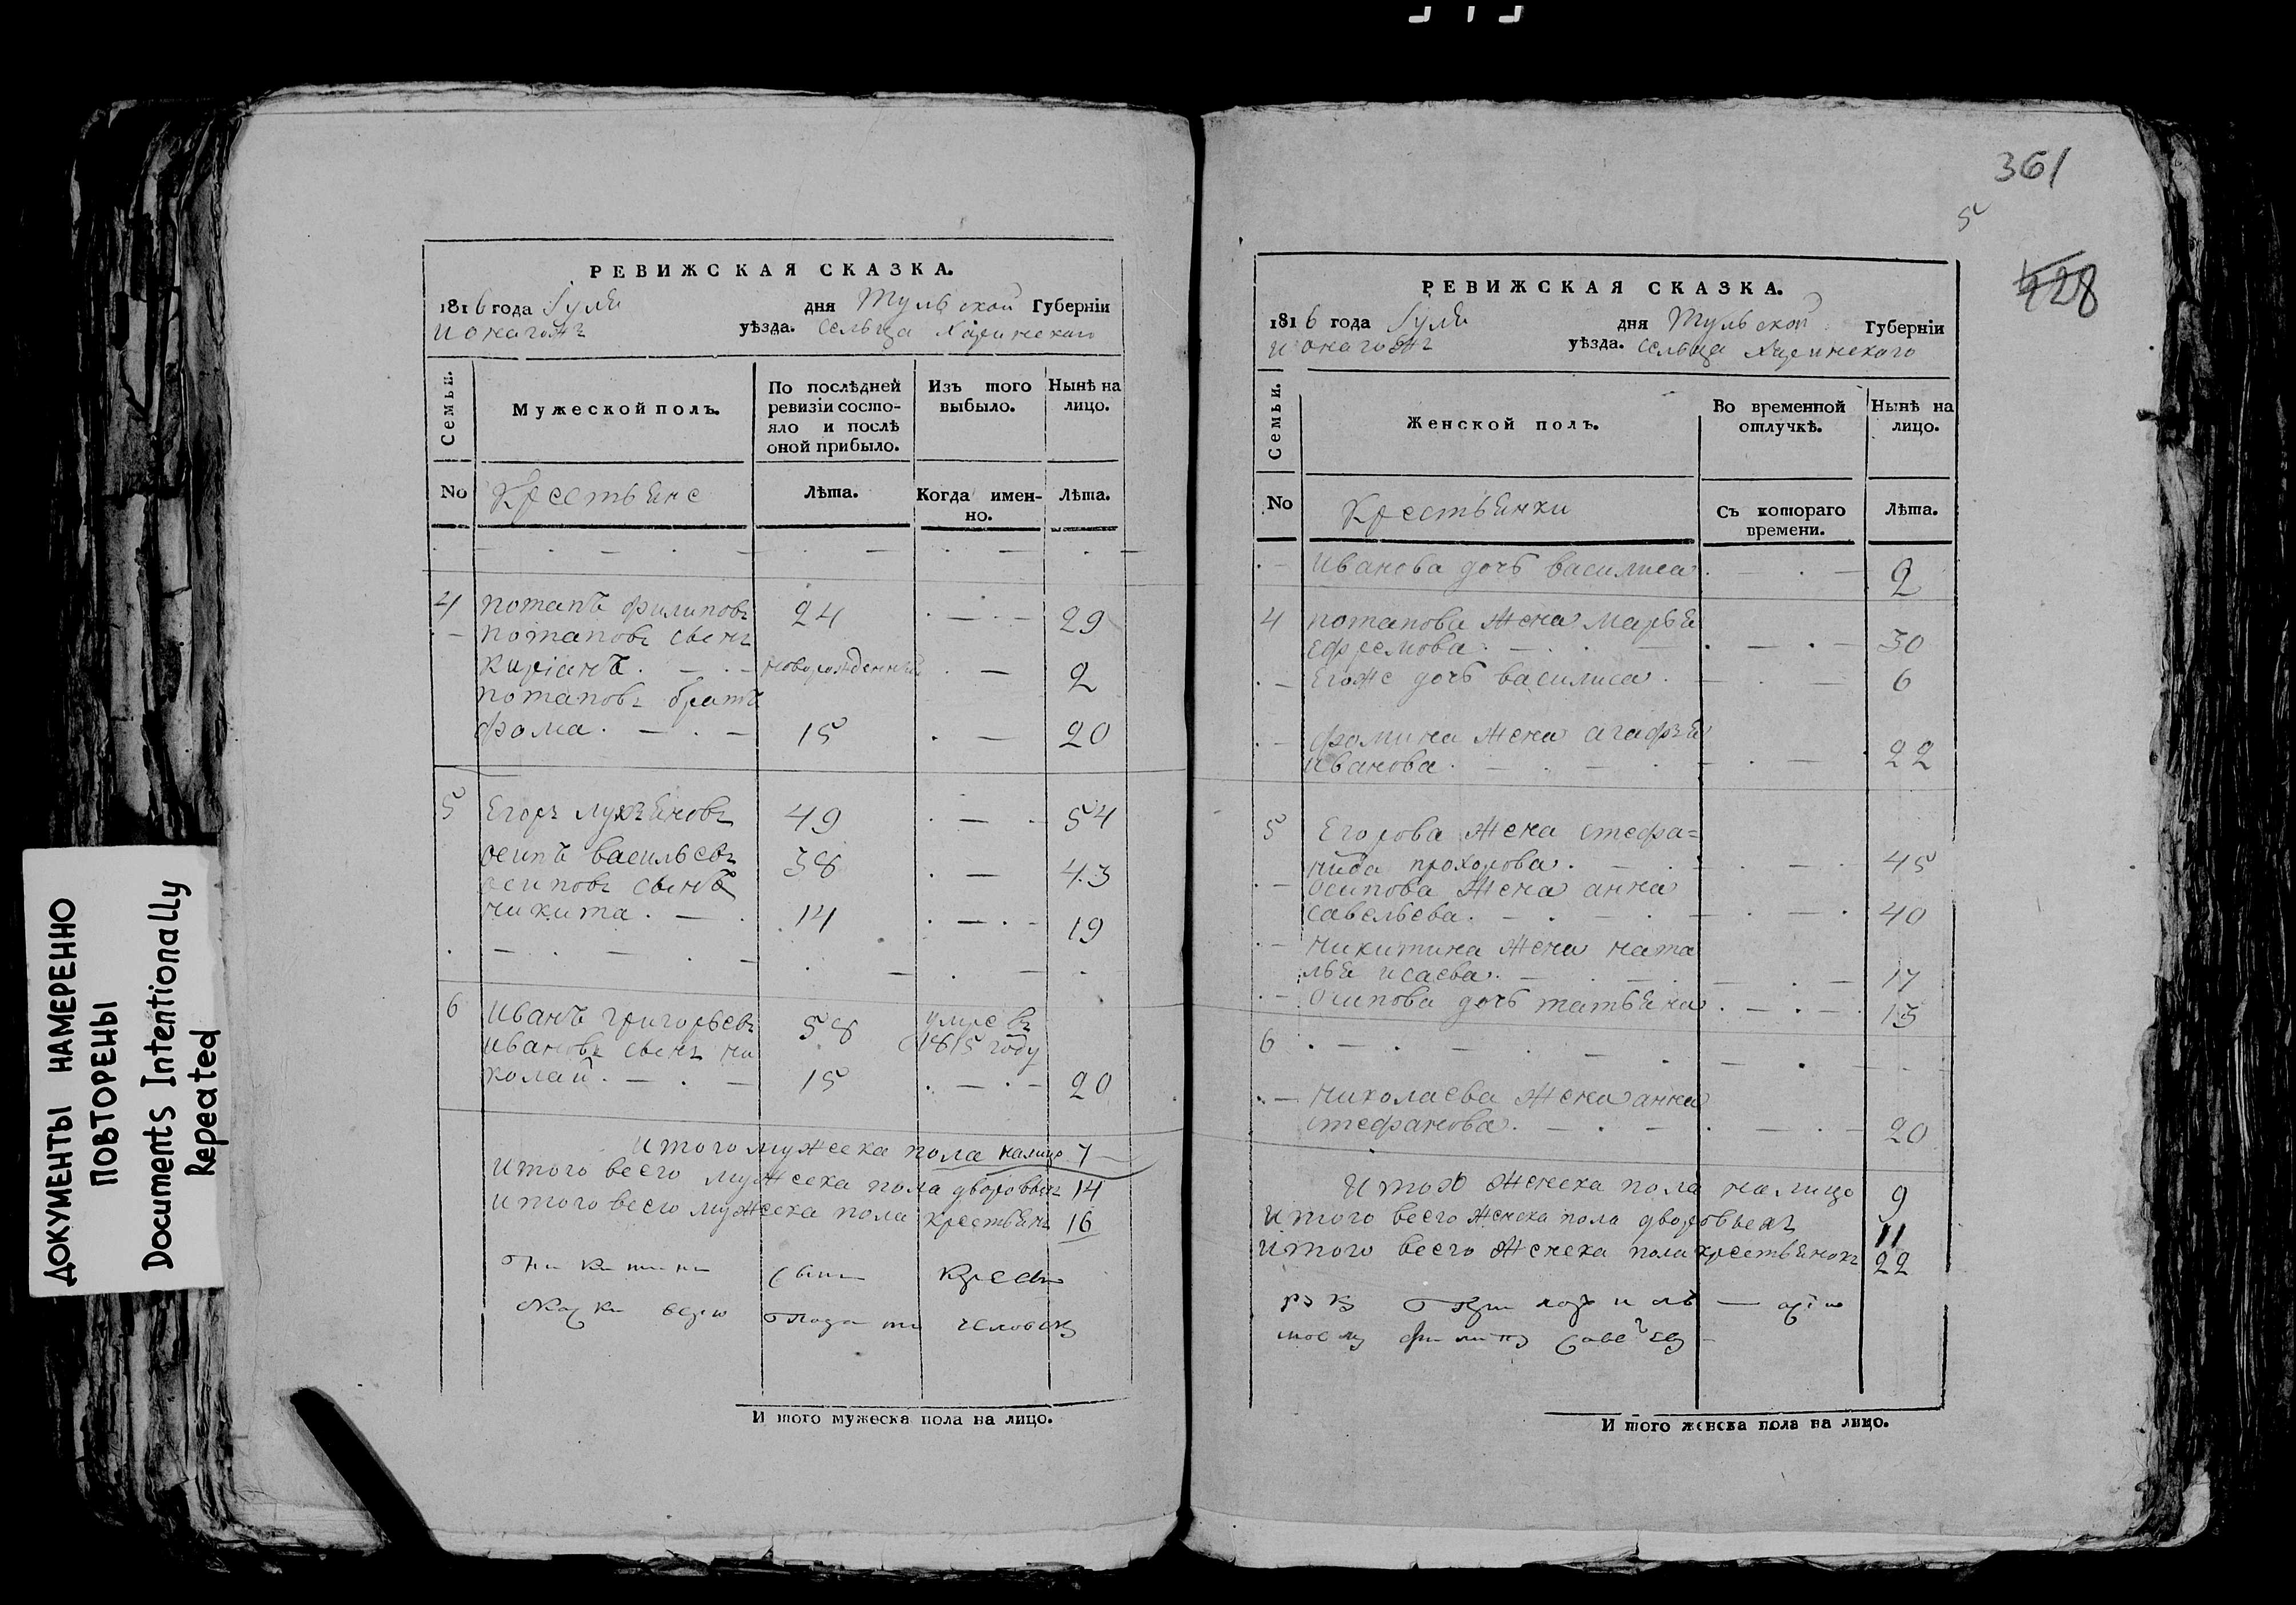 361
5
428
ДОКУМЕНТЫ НАМЕРЕННО
ПОВТОРЕНЫ
Documents Intentionally
Repeated
РЕВИЖСКАЯ СКАЗКА.
1816 года Іуля дня Тульской Губерніи
уѣзда. сельца
Семьи. Мужеской полъ. По послѣдней ревизіи состояло и послѣ оной прибыло. Изъ того выбыло. Нынѣ на лицо.
No Крестьяне Лѣта. Когда именно. Лѣта.
4 потапъ филиповъ 24 29
потаповъ сынъ
киріанъ новорожденный 2
потаповъ братъ
фома 15 20
5 Егоръ лукьяновъ 49 54
осипъ васильевъ 38 43
осиповъ сынъ
никита 14 19
6 иванъ григорьевъ 58 умре въ
ивановъ сынъ ни 1815 году
колай 15 20
итого мужеска пола налицо 7
итого всего мужеска пола дворовыхъ 14
итого всего мужеска пола крестьянъ 16
И того мужеска пола на лицо.
РЕВИЖСКАЯ СКАЗКА.
1816 года Іуля дня Тульской Губерніи
уѣзда. сельца
Семьи. Женской полъ. Во временной отлучкѣ. Нынѣ на лицо.
No Крестьянки Съ котораго времени. Лѣта.
иванова дочь василиса 2
4 потапова жена марья
ефремова 30
Егоже дочь василиса 6
фомина жена агафья
иванова 22
5 Егорова жена стефа=
нида прохорова 45
осипова жена анна
савельева 40
никитина жена ната
лья исаева 17
осипова дочь татьяна 13
6
николаева жена анна
стефанова 20
итого женска пола налицо 9
итого всего женска пола дворовыхъ 11
итого всего женска пола крестьянокъ 22
И того женска пола на лицо.